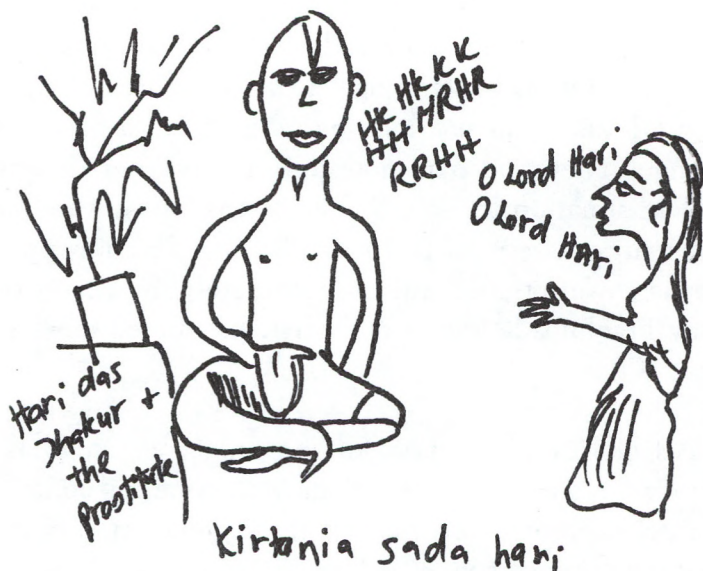 HK HK K K
HH HRHR
RRHH
O Lord Hari
O Lord Hari
Hari das
Thakur +
the
prostitute
Kirtania sada hari